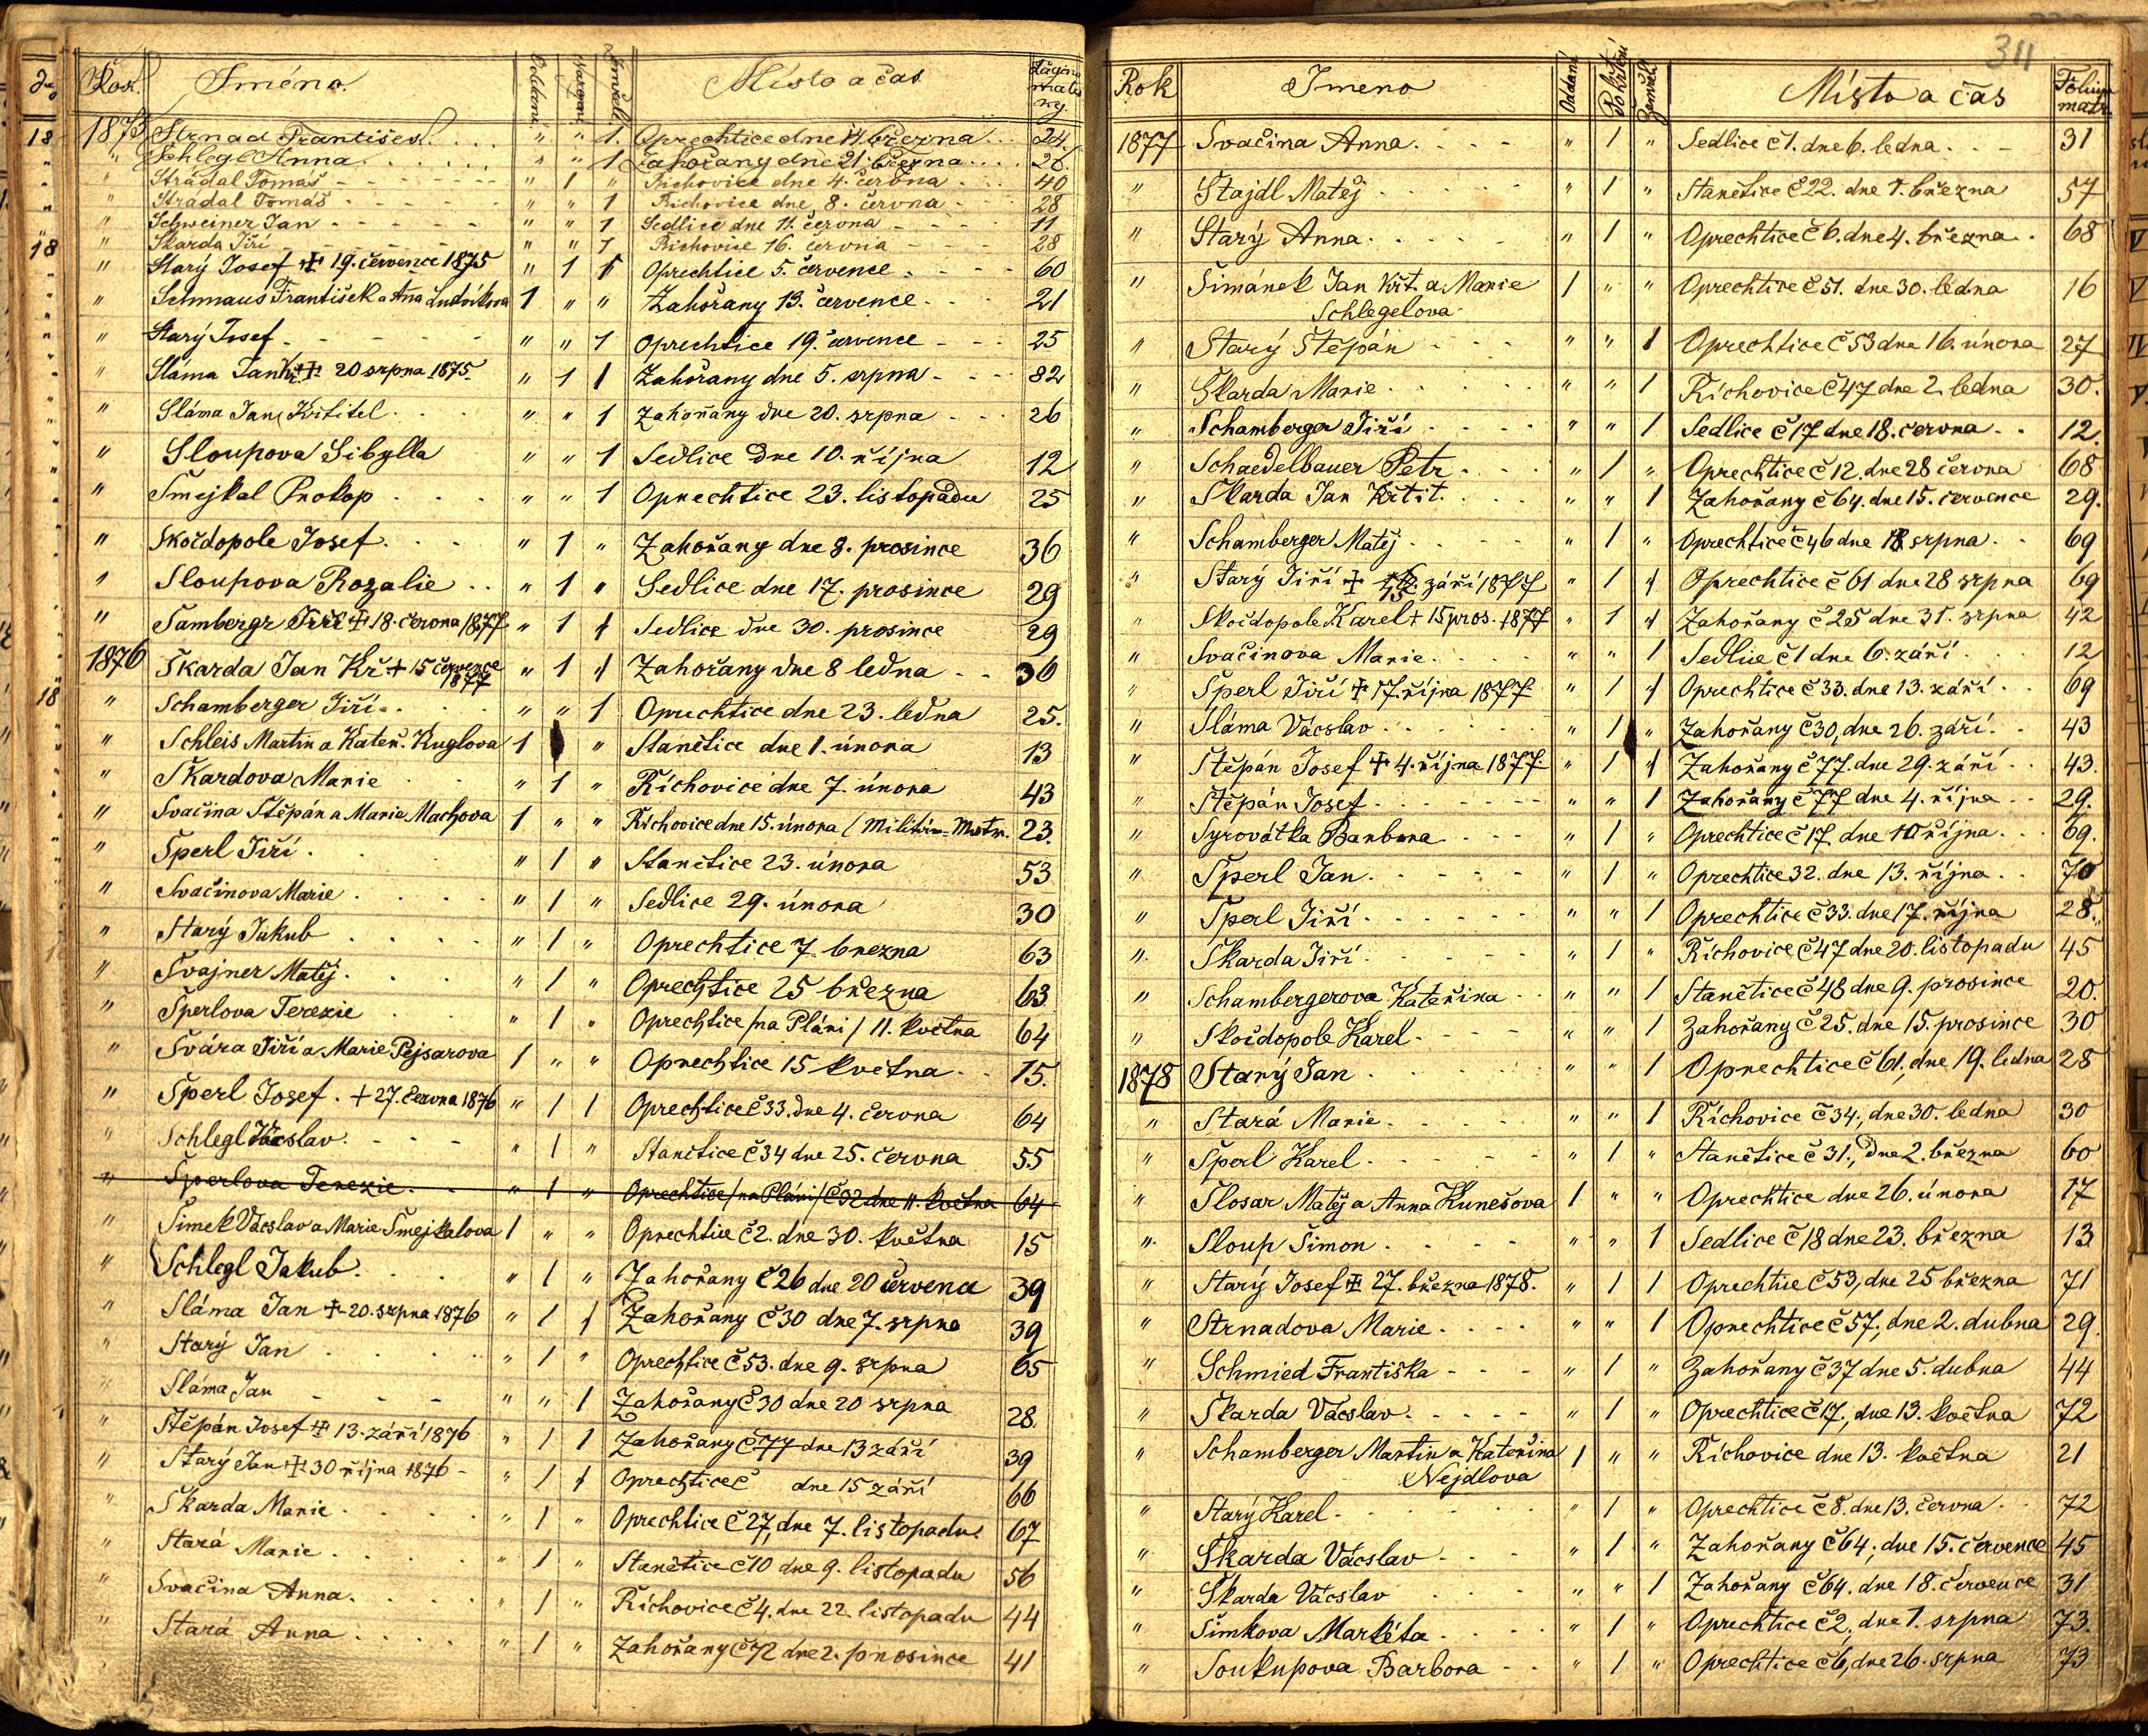 Rok. Jména. Oddaní. Narození. Zemřelí. Místo a čas Pagina matriky.
1875 Strnad František. . . . " " 1. Oprechtice dne 14 března . . . 24.
" Schlegl Anna . . . . . " " 1 Zahořany dne 21. března . . . . 26.
" Strádal Tomáš - - - - - - " 1 " Říchovice dne 4. června . . . 40
" Strádal Tomáš - - - - - " " 1 Říchovice dne 8. června - - - 28
" Schweiner Jan - - - - - " " 1 Sedlice dne 11. června - - - - 11
" Škarda Jiří - - - - - " " 1 Říchovice 16. června - - - - 28
" Starý Josef ✝ 19. července 1875 " 1 1 Oprechtice 5. července . - - - 60
" Schmaus František a Aňa Ludvíkova 1 " " Zahořany 13. července - - - 21
" Starý Josef - - - - - " " 1 Oprechtice 19. července - - - 25
" Sláma Jan Kř ✝ 20 srpna 1875. " 1 1 Zahořany dne 5. srpna - - - 82
" Sláma Jan Křtitel . . . " " 1 Zahořany dne 20. srpna - - - 26
" Sloupova Sibylla " " 1 Sedlice dne 10. října 12
" Šmejkal Prokop . . . . " " 1 Oprechtice 23. listopadu 25
" Skočdopole Josef . . . " 1 " Zahořany dne 8. prosince 36
" Sloupova Rozalie . . " 1 " Sedlice dne 17. prosince 29
" Šambergr Jiří ✝ 18. června 1877 " 1 1 Sedlice dne 30. prosince 29
1876 Škarda Jan Kř ✝ 15 července 1877 " 1 1 Zahořany dne 8 ledna . . 36
" Schamberger Jiří . . . . " " 1 Oprechtice dne 23. ledna 25.
" Schleis Martin a Kateř. Kuglova 1 " Stanětice dne 1. února 13
" Škardova Marie . . " 1 " Říchovice dne 7. února 43
" Svačina Štěpán a Marie Machova 1 " " Říchovice dne 15. února ( Militär-Matr. 23.
" Šperl Jiří . . . . . " 1 " Stanětice 23. února 53
" Svačinova Marie . . . . " 1 " Sedlice 29. února 30
" Starý Jakub . . . . " 1 " Oprechtice 7. března 63
" Švajner Matěj . . . . " 1 " Oprechtice 25 března 63
" Šperlova Terezie . . " 1 " Oprechtice /na Pláni/ 11. května 64
" Švára Jiří a Marie Pejsarova 1 " " Oprechtice 15 května . . 15.
" Šperl Josef . ✝ 27. června 1876 " 1 1 Oprechtice č 33. dne 4. června 64
" Schlegl Václav . - - - " 1 " Stanětice č 34 dne 25. června 55
" Šperlova Terezie . . . " 1 " Oprechtice /na Pláni/ č 32 dne 11. května 64
" Šimek Václav a Marie Šmejkalova 1 " " Oprechtice č 2. dne 30. května 15
" Schlegl Jakub . . . . " 1 " Zahořany č 26 dne 20 července 39
" Sláma Jan ✝ 20. srpna 1876 " 1 1 Zahořany č 30 dne 7. srpna 39
" Starý Jan . . . . . " 1 " Oprechtice č 53. dne 9. srpna 65
" Sláma Jan - - - - " " 1 Zahořany č 30 dne 20 srpna 28.
" Štěpán Josef ✝ 13. září 1876 " 1 1 Zahořany č 77 dne 13 září 39
" Starý Jan ✝ 30 října 1876 - " 1 1 Oprechtice č dne 15 září 66
" Škarda Marie . . . . " 1 " Oprechtice č 27, dne 7. listopadu. 67
" Stará Marie . . . . . " 1 " Stanětice č 10 dne 9. listopadu 56
" Svačina Anna . . . . . " 1 " Říchovice č 4. dne 22. listopadu 44
" Stará Anna . . . . . " 1 " Zahořany č 72 dne 2. prosince 41
311
Rok Jmeno Oddaní Pokřtění Zemřelí Místo a čas Folium matr.
1877 Svačina Anna . - - - " 1 " Sedlice č 1. dne 6. ledna . . - 31
" Štajdl Matěj . . . . . " 1 " Stanětice č 22. dne 1. března 57
" Starý Anna . . . . . " 1 " Oprechtice č 6. dne 4. března . 68
" Šimánek Jan Křt. a Marie 1 " " Oprechtice č 51. dne 30. ledna 16
Schlegelova
" Starý Štěpán . . . . " " 1 Oprechtice č 53 dne 16. února 27
" Škarda Marie . . . . . " " 1 Říchovice č 47 dne 2. ledna 30.
" Schamberger Jiří . . . . " " 1 Sedlice č 17 dne 18. června . . 12.
" Schaedelbauer Petr . . . " 1 " Oprechtice č 12. dne 28 června 68
" Škarda Jan Křtit. . . . " " 1 Zahořany č 64. dne 15. července 29.
" Schamberger Matěj . . . . " 1 " Oprechtice č 46 dne 18 srpna . . 69
" Starý Jiří ✝ 15. září 1877 " 1 1 Oprechtice č 61 dne 28 srpna 69
" Skočdopole Karel ✝ 15 pros. 1877 " 1 1 Zahořany č 25 dne 31. srpna 42
" Svačinova Marie . . . . " " 1 Sedlice č 1 dne 6. září . . . 12
" Šperl Jiří ✝ 17. října 1877. " 1 1 Oprechtice č 33. dne 13. září . . 69
" Sláma Václav . . . . . . " 1 " Zahořany č 30, dne 26. září . . 43
" Štěpán Josef ✝ 4. října 1877. " 1 1 Zahořany č 77. dne 29. září . . 43.
" Štěpán Josef . - - - - - " " 1 Zahořany č 77 dne 4. října - - 29.
" Syrovátka Barbora . - - - " 1 " Oprechtice č 17. dne 10 října . . . 69.
" Šperl Jan . . - - - - " 1 " Oprechtice 32. dne 13. října . . 70
" Šperl Jiří . - - - - - " " 1 Oprechtice č 33. dne 17. října 28.
". Škarda Jiří . . - - - - " 1 " Říchovice č 47 dne 20. listopadu 45
" Schambergerova Kateřina . . " " 1 Stanětice č 48 dne 9. prosince 20.
" Skočdopole Karel . - - - " " 1 Zahořany č 25. dne 15. prosince 30
1878 Starý Jan . . . . . . " " 1 Oprechtice č 61., dne 19. ledna 28
" Stará Marie . . . . . " " 1 Říchovice č 34., dne 30. ledna 30
" Šperl Karel . - - - - - " 1 " Stanětice č 31., dne 2. března 60
" Slosar Matěj a Anna Kunešova 1 " " Oprechtice dne 26. února 17
". Sloup Šimon . - - - - " " 1 Sedlice č 18 dne 23. března 13
" Starý Josef ✝ 27. března 1878. " 1 1 Oprechtice č 53, dne 25 března 71
" Strnadova Marie . . . . " " 1 Oprechtice č 57., dne 2. dubna 29.
" Schmied Františka - - - - " 1 " Zahořany č 37 dne 5. dubna 44
" Škarda Václav . - - - - " 1 " Oprechtice č 17., dne 13. května 72
" Schamberger Martin a Kateřina 1 " " Říchovice dne 13. května 21
Nejdlova
" Starý Karel . . . . . . " 1 " Oprechtice č 8. dne 13. června . . 72
" Škarda Václav . - - - " 1 " Zahořany č 64., dne 15. července 45
" Škarda Václav . . . " " 1 Zahořany č 64. dne 18. července 31
" Šimkova Markéta . . . . " 1 " Oprechtice č 2., dne 1. srpna 73.
" Soukupova Barbora - . . " 1 " Oprechtice č 6, dne 26. srpna 73